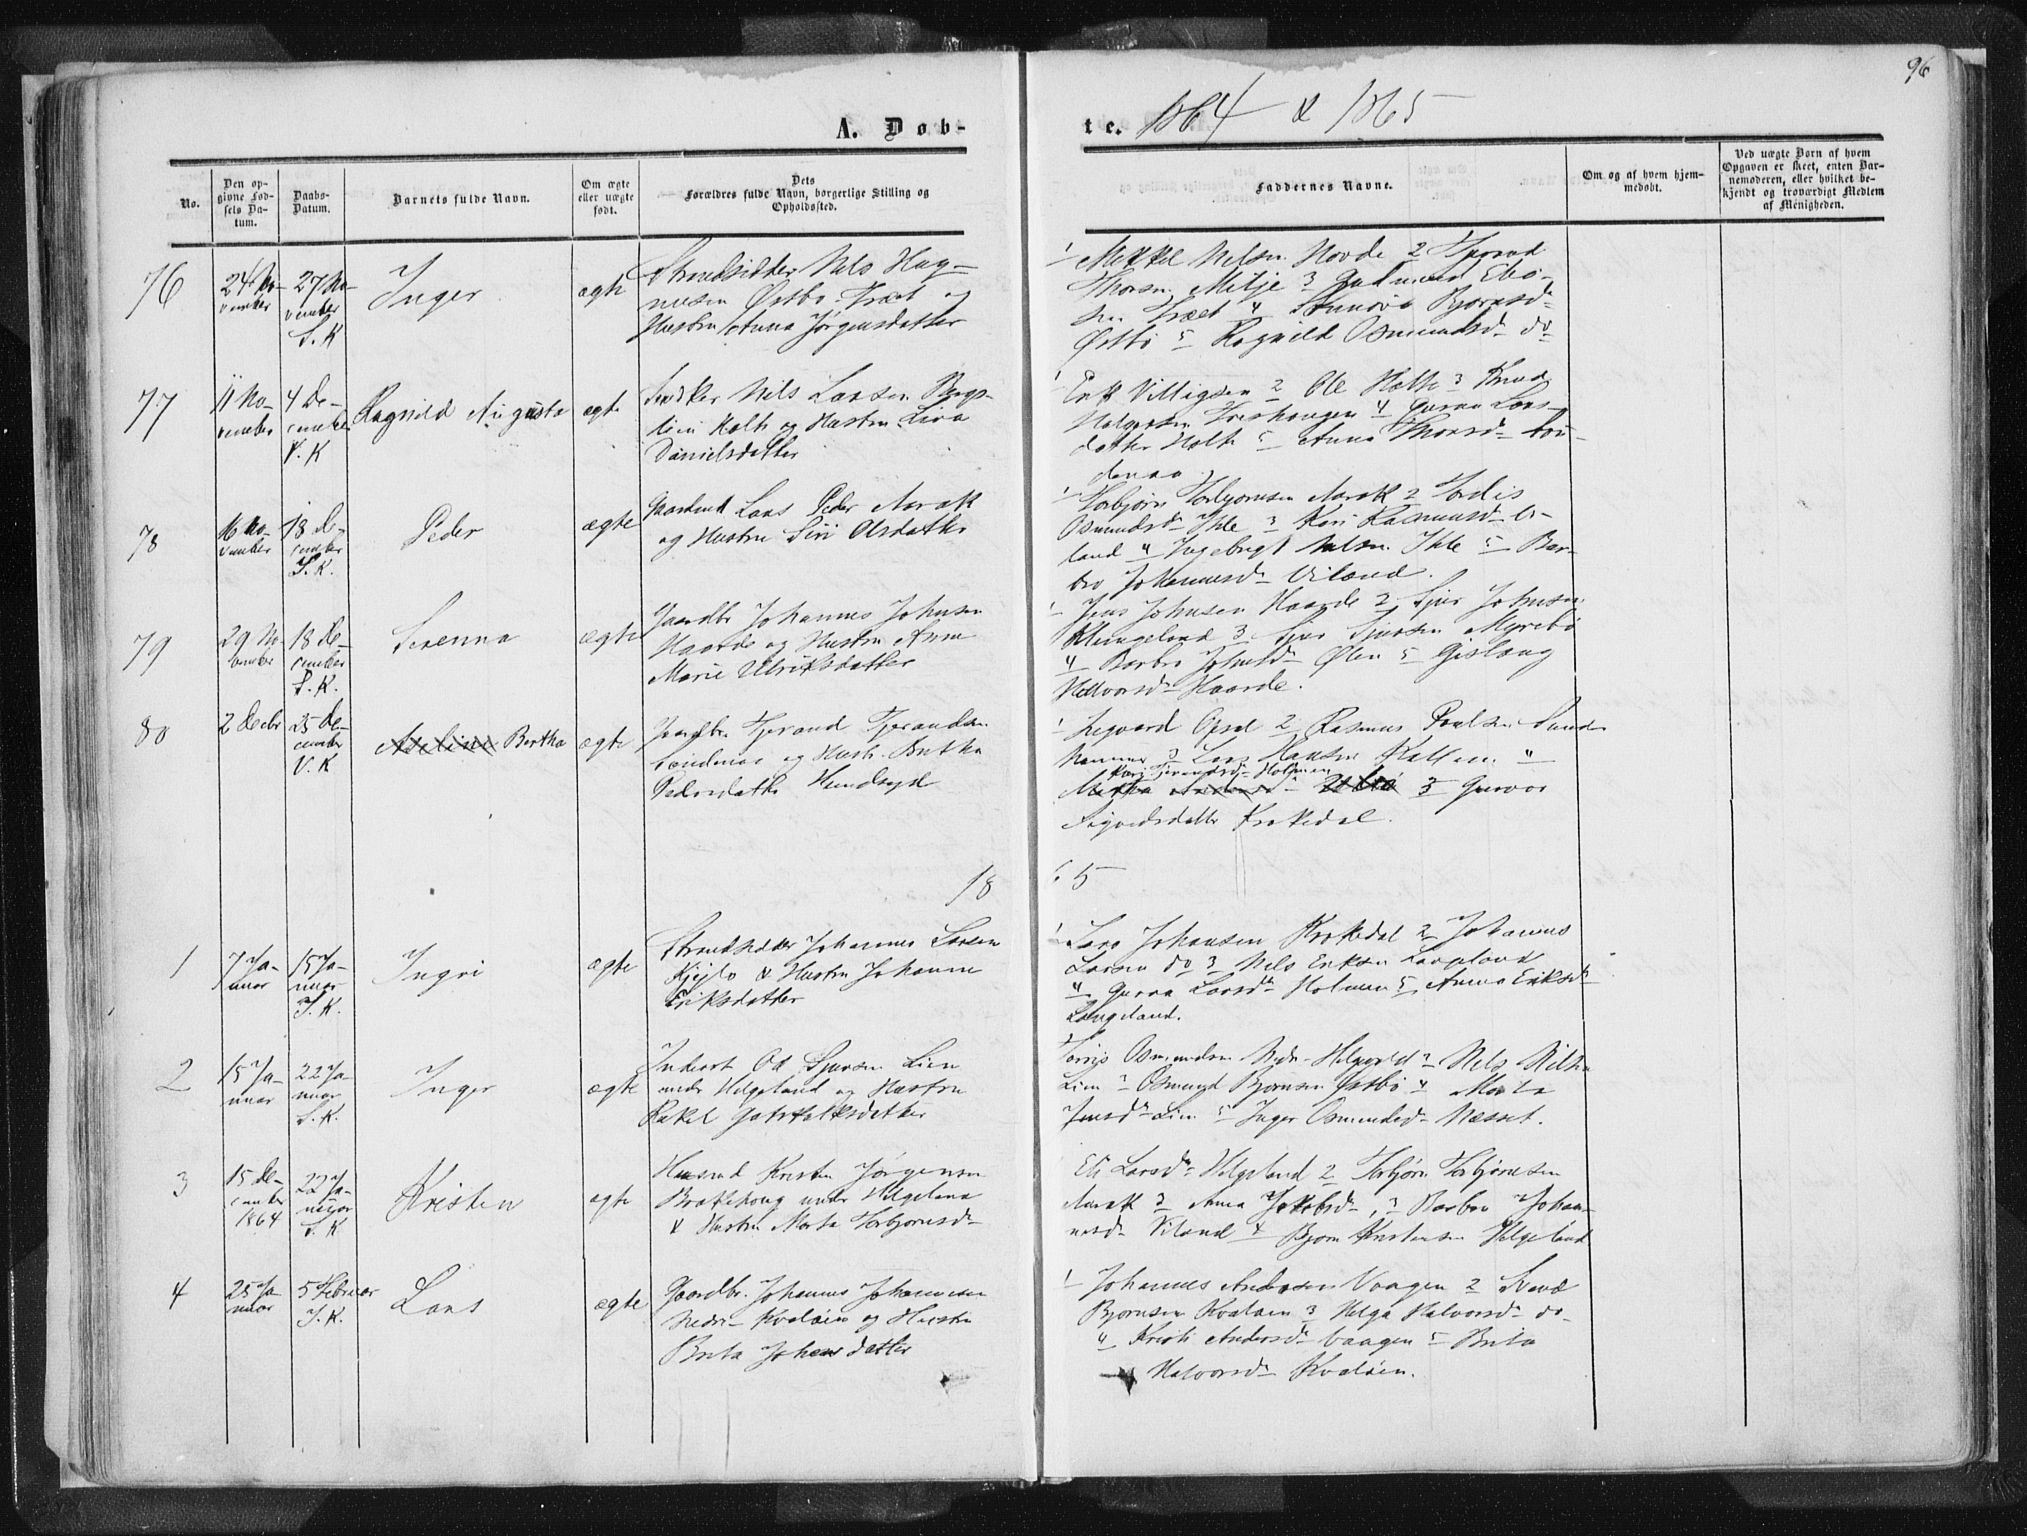 96
A. Døb-
te. 1864 & 1865
No.
Den op-
givne Fød-
sels Da-
tum.
Daabs-
Datum.
Barnets fulde Navn.
Om ægte
eller uægte
født.
Dets
Forældres fulde Navn, borgerlige Stilling og
Opholdssted.
Faddernes Navne.
Om og af hvem hjem-
medøbt.
Ved uægte Børn af hvem
Opgaven er skeet, enten Bar-
nemoderen, eller hvilket be-
kjendt og troværdigt Medlem
af Menigheden.
76
24 No-
vember
27 No-
vember
S. K
Inger
ægte
Strandsidder Nels Hag-
nesen Østbø Træet og
Hustru Anna Jørgensdatter
1 Mikkel Nelsen Hovde 2
Thorsn. Milje 3 Gudmund
Træet 4 Bjørnsd-
Østbø 5 Ragnild Osmundsd- do
77
11 No-
vember
4 De-
cember
V. K
Ragnild Augusta
ægte
Nels Larsen
Holte og Hustru Liva
Danielsdatter
1 Erik Villigsen 2 Ole Holte 3 Knud
4 Gurua Lars-
datter Holte 5 Anna
78
16 No-
vember
18 De-
cember
S. K.
Peder
ægte
Gaardmd Lars Peder Aarak
og Hustru Siri Olsdatter
1 Torbjørn Torbjørnsen Aarak 2 Tordis
Osmundsd- Ihle 3 Kari Rasmusd- Vi-
land 4 Ingebrigt Nelsn. Ihle 5 Bar-
bro Johannesd- Viland.
79
29 No-
vember
18 De-
cember
S. K.
Serenna
ægte
Gaardbr Johannes Johnsen
Haarde og Hustru Anne
Marie Ulriksdatter
1 Jens Johnsen Haarde 2 Sjur Johnsen
Klungeland 3 Sjur Sjursen Myrebø
4 Barbro Johnsd- Ølen 5 Gislaug
Halvorsd- Haarde.
80
2 Decbr
25 De-
cember
V. K
Adeline Bertha
ægte
Gaardbr. Tjerand Tjerandsn
og Hustr. Bertha
Pedersdatter
1 Opsal 2 Rasmus Poulsen Sunde
3 Lars Hansen 4
Kari Tjerandsd- Holmen
5 Guroe
Sigvedsdatter Krokedal.
18 65
1
7 Ja-
nuar
15 Ja-
nuar
S. K.
Ingri
ægte
Strandsidder Johannes Larsen
& Hustru Johanne
Eriksdatter
1 Lars Johansen Krokedal 2 Johannes
Larsen do 3 Nels Eriksen Langeland
4 Gurua Larsd- Holmen 5 Anna Eriksd-
Langeland.
2
15 Ja-
nuar
22 Ja-
nuar
S. K.
Inger
ægte
Inderst Od Sjursen Lien
under Helgeland og Hustru
Rakel Gotskalksdatter
Torris Osmundsn Nedr- Helgeld 2 Nels Nilsen
Lien 3 Osmund Bjørnsen Østbø 4 Marta
Jensd- Lien 5 Inger Osmundsd- Næsset.
3
15 De-
cember
1864
22 Ja-
nuar
S. K
Kristen
ægte
Husmd Kristen Jørgensen
Brakehoug under Helgeland
& Hustru Marta Torbjørnsd-
Eli Larsd- Helgeland 2 Torbjørn Torbjørnsen
Aarak 3 Anna Jakobsd-, 3 Barbro Johan-
nesd- Viland 4 Bjørn Kristensen Helgeland
4
25 Ja-
nuar
5 Februar
S. K.
Lars
ægte
Gaardbr. Johannes Johannesen
Nedre- Kvaløen og Hustru
Brita Johansdatter
1 Johannes Andersen Vaagen 2
Bjørnsen Kvaløen 3 Helga Halvorsd- do-
4 Kristi Andersd- Vaagen 5 Brita
Halvorsd- Kvaløen.